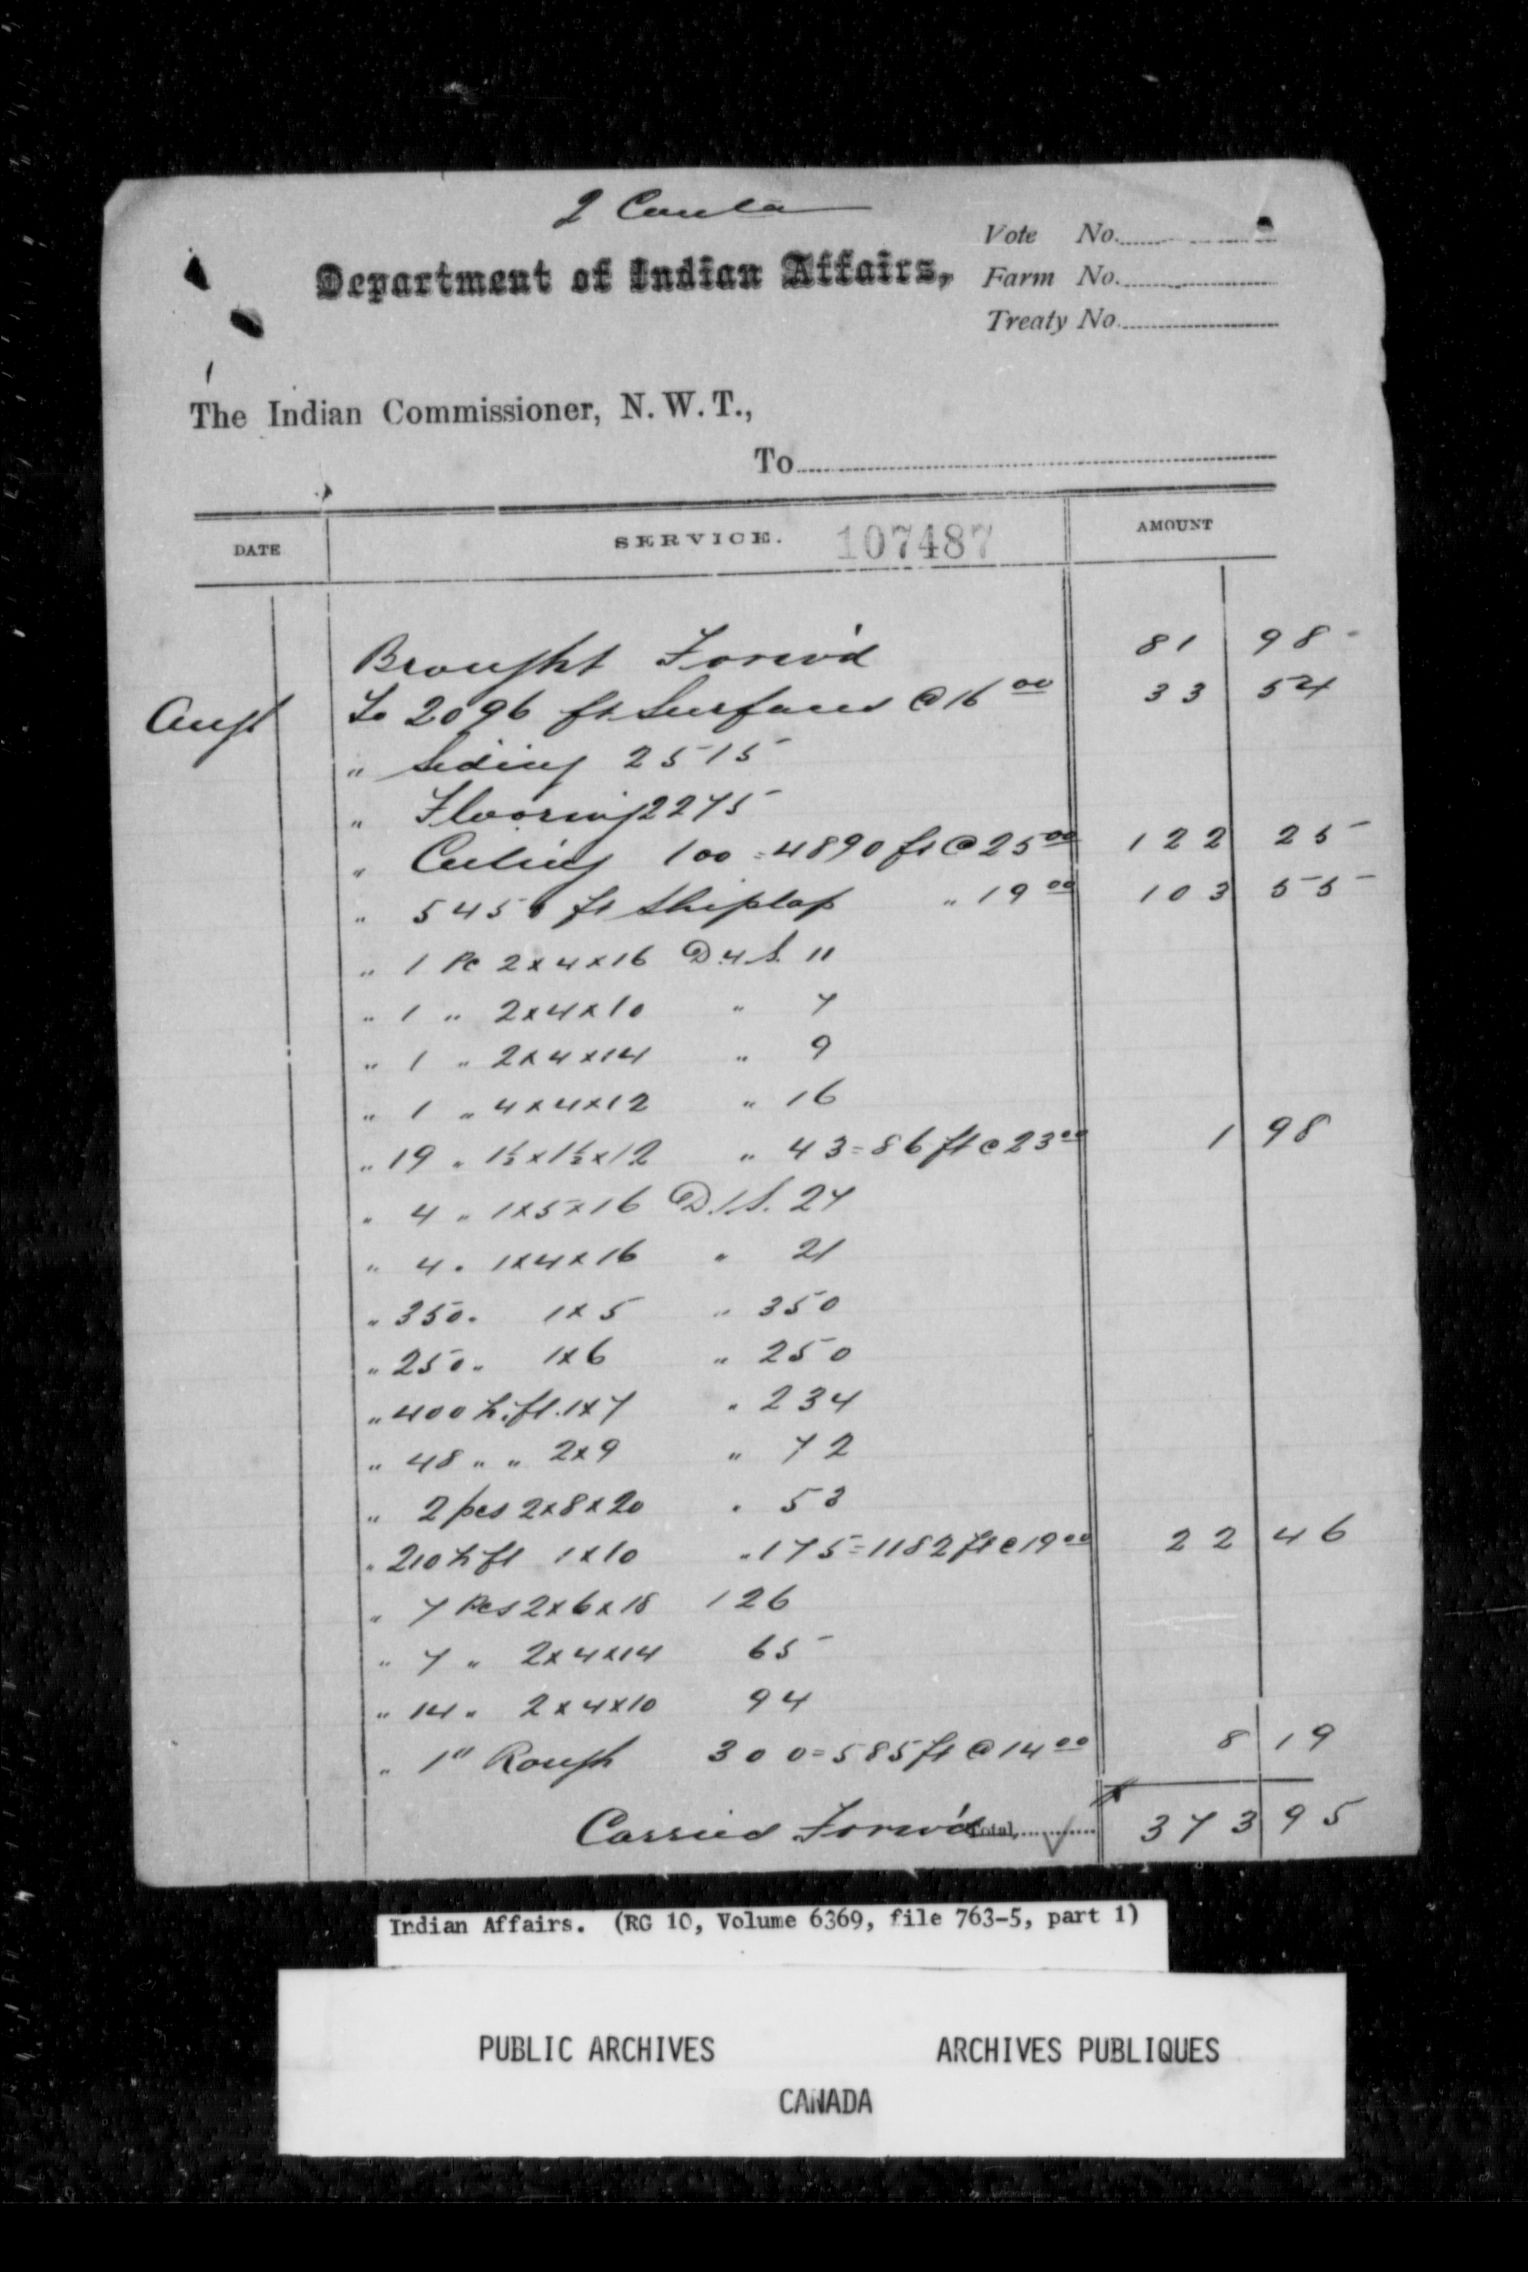 2 Contd
Vote No.
Department of Indian Affairs,
Farm No.
Treaty No.
The Indian Commissioner, N. W. T.,
To
DATE SERVICE. 107487 AMOUNT
Brought Forw'd 81 98
Augt To 2096 ft Surfaced @ 16 00 33 54
" Siding 2515
" Flooring 2275
" Ceiling 100 = 4890 ft @ 25 00 122 25
" 5450 ft Shiplap " 19 00 103 55
" 1 Pc 2x4x16 D4S. 11
" 1 " 2x4x10 " 7
" 1 " 2x4x14 " 9
" 1 " 4x4x12 " 16
" 19 " 1½x1½x12 " 43 = 86 ft @ 23 00 1 98
" 4 " 1x5x16 D1S. 27
" 4 " 1x4x16 " 21
" 350 " 1x5 " 350
" 250 " 1x6 " 250
" 400 L. ft. 1x7 " 234
" 48 " " 2x9 " 72
" 2 pcs 2x8x20 " 53
" 210 L ft 1x10 " 175 = 1182 ft @ 19 00 22 46
" 7 Pcs 2x6x18 126
" 7 " 2x4x14 65
" 14 " 2x4x10 94
" 1" Rough 300 = 585 ft @ 14 00 8 19
Carried Forw'd Total 373 95
Indian Affairs. (RG 10, Volume 6369, file 763-5, part 1)
PUBLIC ARCHIVES ARCHIVES PUBLIQUES
CANADA